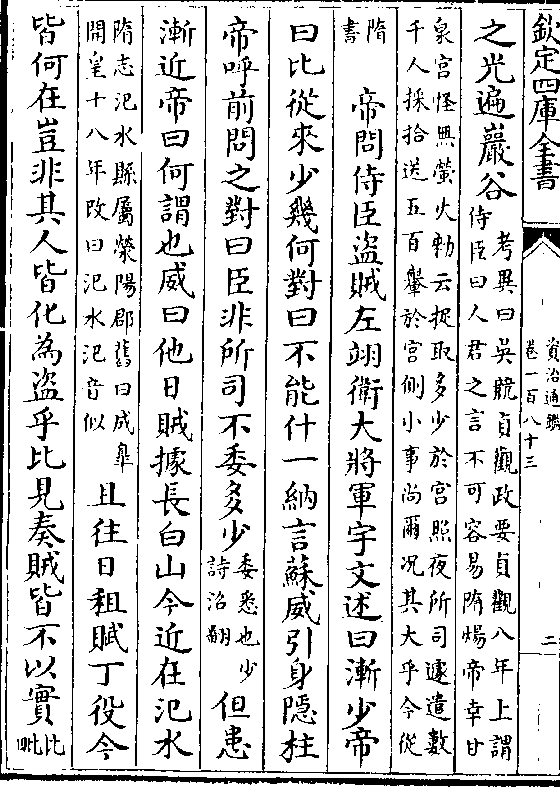 欽定四庫全書
資治通鑑
卷一百八十三
二
之光遍巖谷
考異曰吳兢貞觀政要貞觀八年上謂
侍臣曰人君之言不可容易隋煬帝幸甘
泉宮怪無螢火勅云捉取多少於宮照夜所司遽遣數
千人採拾送五百轝於宮側小事尚爾况其大乎今從
隋
書
帝問侍臣盜賊左翊衛大將軍宇文述曰漸少帝
曰比從來少幾何對曰不能什一納言蘇威引身隱柱
帝呼前問之對曰臣非所司不委多少
委悉也少
詩沼翻
但患
漸近帝曰何謂也威曰他日賊據長白山今近在汜水
隋志汜水縣屬滎陽郡舊曰成臯
開皇十八年改曰汜水汜音似
且往日租賦丁役今
皆何在豈非其人皆化為盜乎比見奏賊皆不以實
比
毗